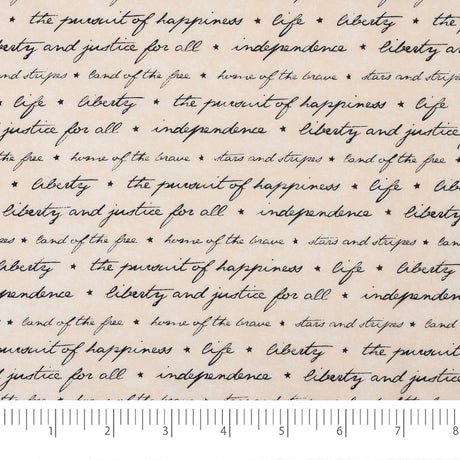 the pursuit of happiness * life * liberty * the
liberty and justice for all * independence * liberty
and stripes * land of the free * home of the brave * stars and stripes
* life * liberty * the pursuit of happiness * life
justice for all * independence * liberty and justice
the free * home of the brave * stars and stripes * land of the free
* liberty * the pursuit of happiness * life * lib
liberty and justice for all * independence * liberty
* land of the free * home of the brave * stars and stripes * land
liberty * the pursuit of happiness * life * liberty
independence * liberty and justice for all * independen
* land of the free * home of the brave * stars and stripes * land
pursuit of happiness * life * liberty * the pursuit
justice for all * independence * liberty and justice
1 2 3 4 5 6 7 8